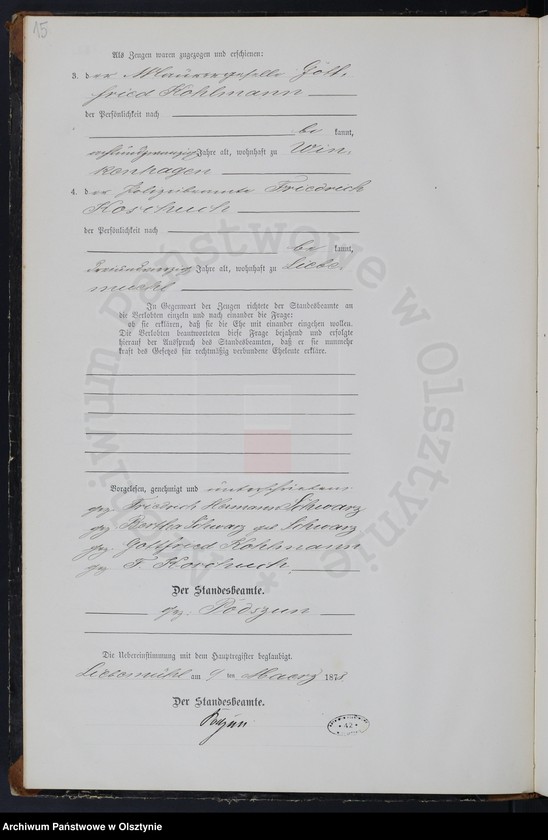 15
Als Zeugen waren zugezogen und erschienen:
3. der Maurergeselle Gott-
fried Kohlmann
der Persönlichkeit nach
be kannt,
Jahre alt, wohnhaft zu Win-
kenhagen
4. der Polizeibeamte Friedrich
Koschuch
der Persönlichkeit nach
be kannt,
Jahre alt, wohnhaft zu Liebe-
muehl
In Gegenwart der Zeugen richtete der Standesbeamte an
die Verlobten einzeln und nach einander die Frage:
ob sie erklären, daß sie die Ehe mit einander eingehen wollen.
Die Verlobten beantworteten diese Frage bejahend und erfolgte
hierauf der Ausspruch des Standesbeamten, daß er sie nunmehr
kraft des Gesetzes für rechtmäßig verbundene Eheleute erkläre.
Vorgelesen, genehmigt und unterschrieben
gez. Friedrich Hermann Schwarz
gez. Bertha Schwarz geb. Schwarz
gez. Gottfried Kohlmann
gez. F. Koschuch
Der Standesbeamte.
gez. Podszun
Die Uebereinstimmung mit dem Hauptregister beglaubigt.
Liebemühl am ten Maerz 1878
Der Standesbeamte.
Podszun
42
Archiwum Państwowe w Olsztynie
Archiwum Państwowe w Olsztynie